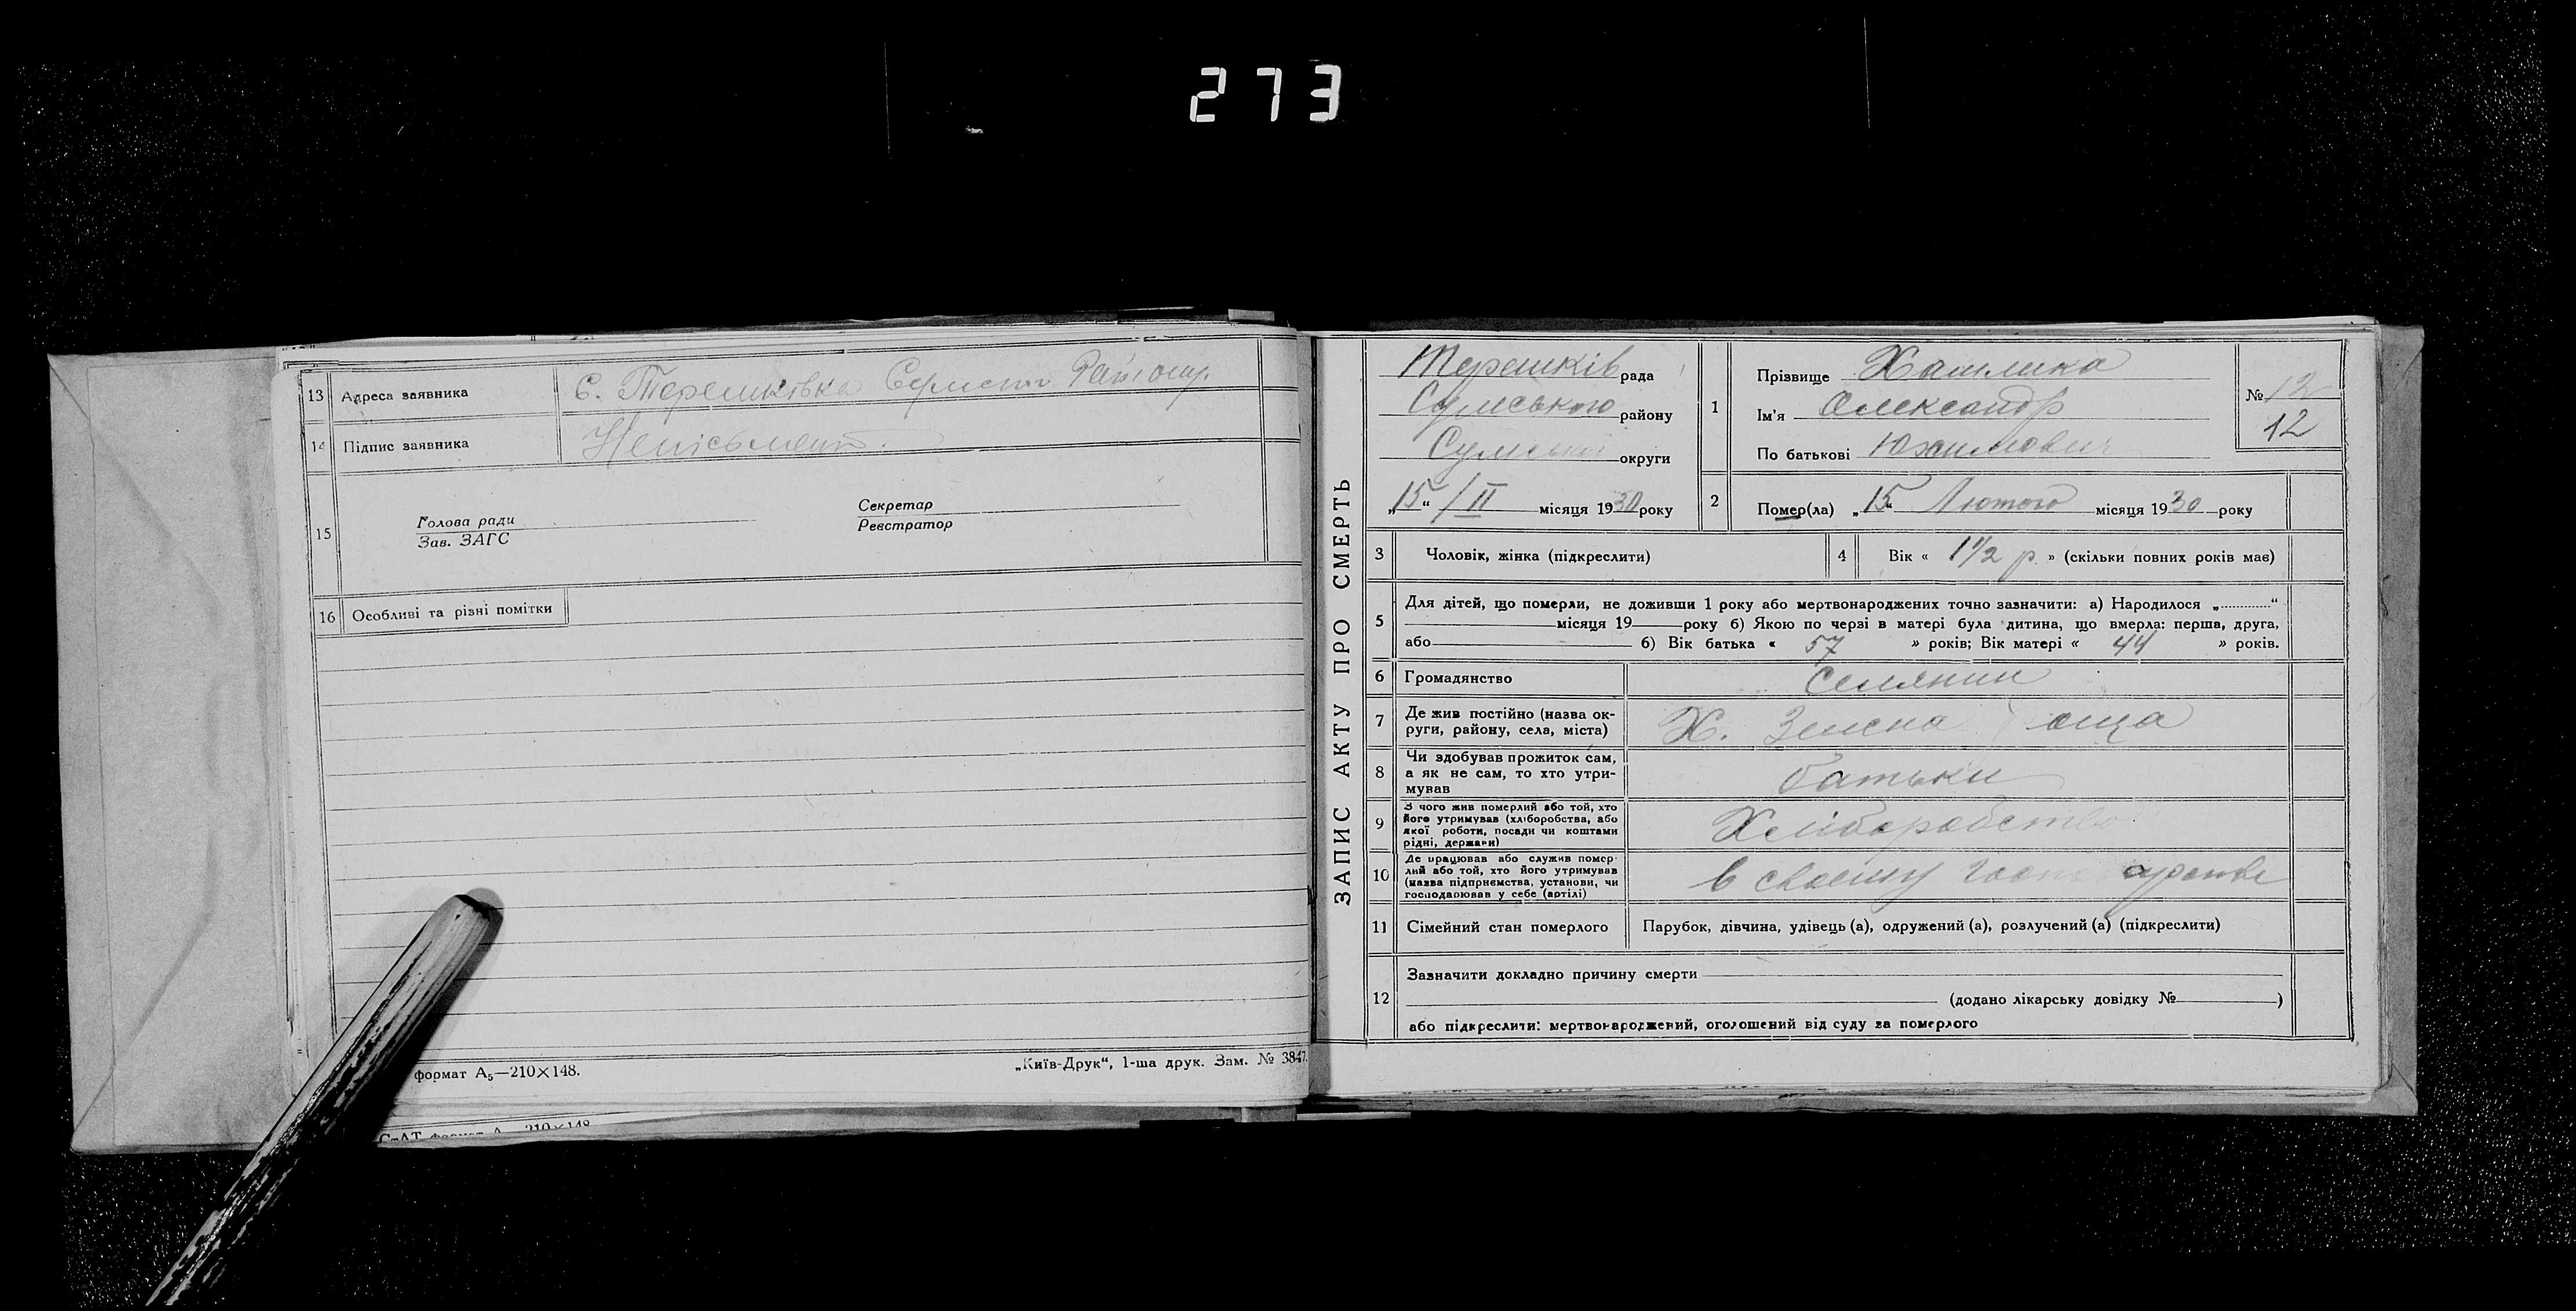 273
13 Адреса заявника с. Терешківка
14 Підпис заявника Неписьмен.
15 Голова ради
Зав. ЗАГС
Секретар
Реєстратор
16 Особливі та різні помітки
формат А5—210×148.
„Київ-Друк“, 1-ша друк. Зам. № 3847.
формат А 210×148
ЗАПИС АКТУ ПРО СМЕРТЬ
Терешків рада
Сумського району
Сумської округи
„15“/II місяця 1930 року
1 Прізвище
Ім'я Олександр
По батькові Юхимович
№ 12
12
2 Помер(ла) „15“ Лютого місяця 1930 року
3 Чоловік, жінка (підкреслити)
4 Вік « 1 1/2 р. » (скільки повних років має)
5 Для дітей, що померли, не доживши 1 року або мертвонароджених точно зазначити: а) Народилося „ “
місяця 19 року б) Якою по черзі в матері була дитина, що вмерла: перша, друга,
або б) Вік батька « 57 » років; Вік матері « 44 » років.
6 Громадянство Селянин
7 Де жив постійно (назва ок-
руги, району, села, міста) Х. Зелена
8 Чи здобував прожиток сам,
а як не сам, то хто утри-
мував батьки
9 З чого жив померлий або той, хто
його утримував (хліборобства, або
якої роботи, посади чи коштами
рідні, держави) Хліборобство
10 Де працював або служив помер-
лий або той, хто його утримував
(назва підприємства, установи, чи
господарював у себе (артілі) в своєму
11 Сімейний стан померлого Парубок, дівчина, удівець (а), одружений (а), розлучений (а) (підкреслити)
12 Зазначити докладно причину смерти
(додано лікарську довідку № )
або підкреслити: мертвонароджений, оголошений від суду за померлого